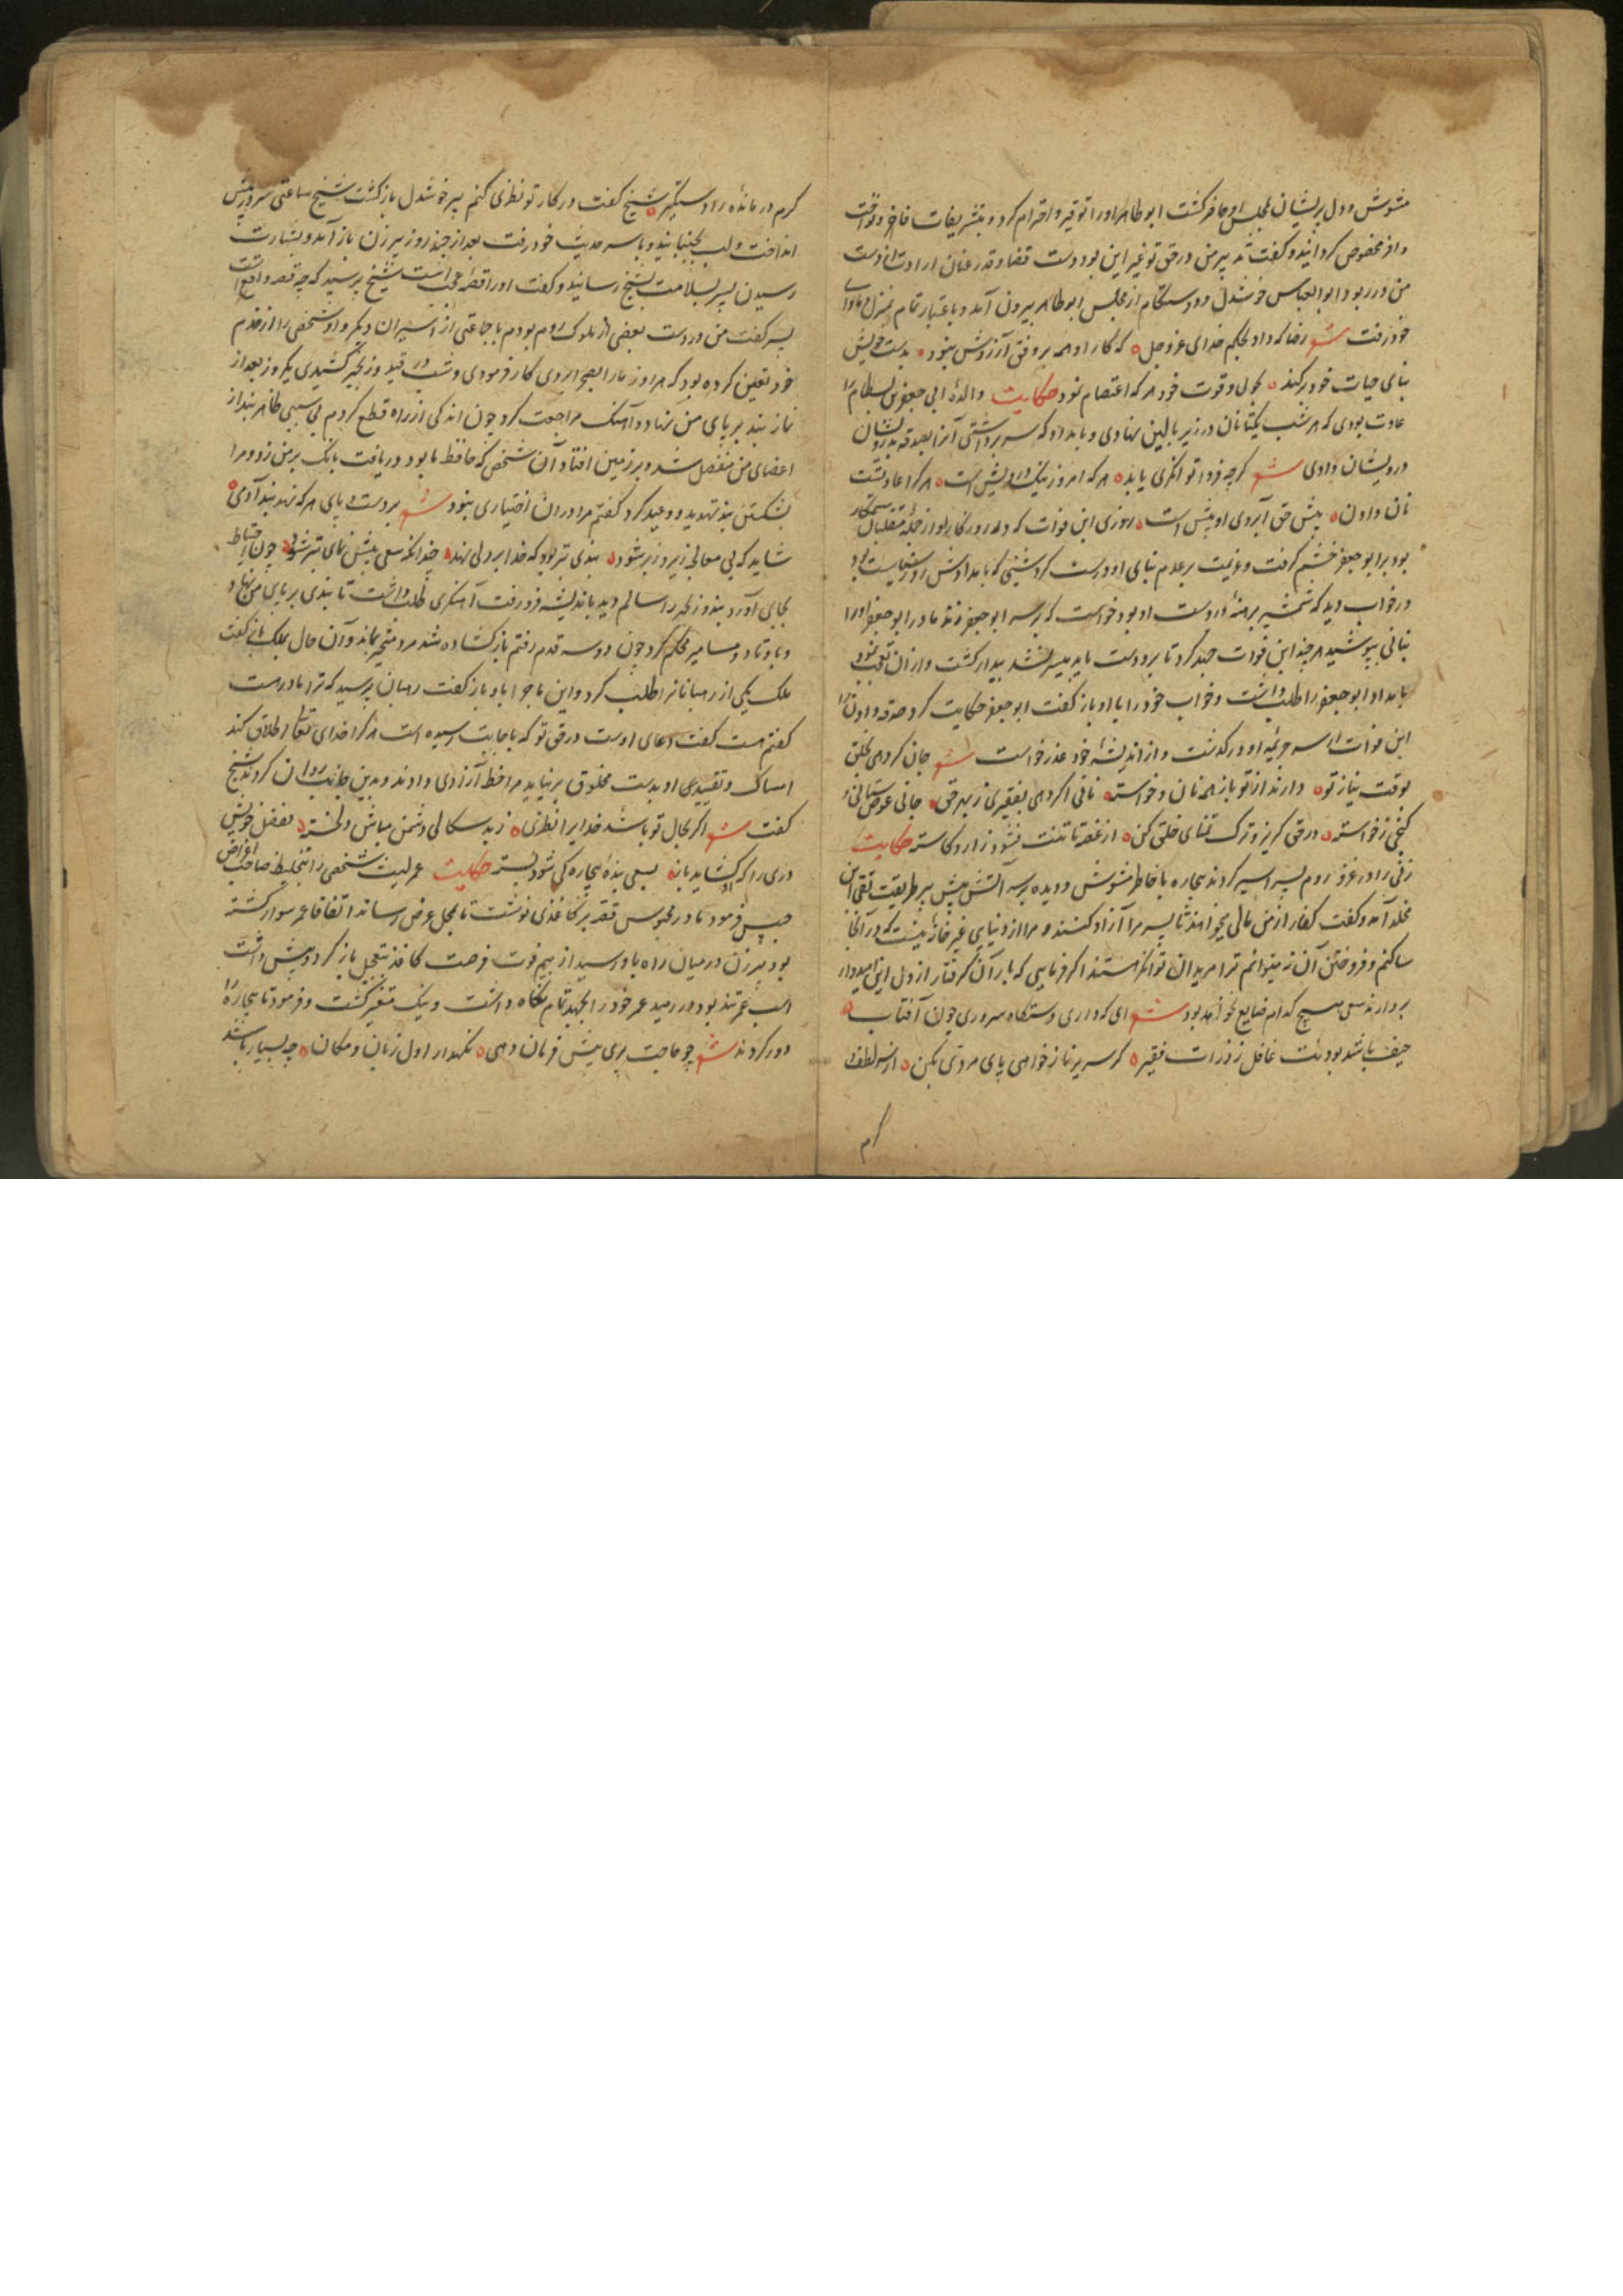 مشوش و دل پریشان بمجلس او حاضر کشت ابو طاهر او را توقیر و احترام کرد و بتشریفات فاخر و نواخت
وافر مخصوص کردانید و کفت تدبیر من در حق تو غیر این بود دست قضا و قدر عنان ارادت از دست
من در ربود ابو العباس خوشدل و دوستکام از مجلس ابو طاهر بیرون آمد و باعتبار تمام بمنزل و ماوای
خود رفت شعر رضا که داد بحکم خدای عز و جل که کار او همه بر وفق آرزوش نبود بدست خویش
بنای حیات خود بر کند بحول و قوت خود هر که اعتصام نمود حکایت والدهٔ ابی جعفر بن بسطام را
عادت بودی که هر شب یکتا نان در زیر بالین نهادی و بامداد که سر برداشتی آنرا بصدقه بدرویشان
درویشان دادی شعر کرچه فردا توانکری یابد هر که امروز نیک درویش است هر کرا عادتست
نان دادن پیش حق آبروی او بیش است روزی ابن فرات که در روزکار او از جملهٔ متقلبان ستمکار
بود بر ابو جعفر خشم کرفت و عزیمت بر عدم بنای او درست کرد شبی که بامدادش روز سیاست بود
در خواب دید که شمشیر برهنهٔ در دست او بود خواست که بر سر ابو جعفر زند مادر ابو جعفر او را
بنانی بپوشید هر چند ابن فرات جهد کرد تا برو دست یابد میسر نشد بیدار کشت و از آن تعجب نمود
بامداد ابو جعفر را طلب داشت و خواب خود را با او باز کفت ابو جعفر حکایت کرد صدقه دادن را
ابن فرات از سر جریمهٔ او در کذشت و از اندیشهٔ خود عذر خواست شعر جان کر دهی بخلق
بوقت نیاز تو دارند از تو باز همه نان و خواسته نانی اکر دهی بفقیری ز بهر حق جانی عوض ستانی و
کنجی ز خواسته در حق کریز و ترک تمنای خلق کن از غصه تا تنت نشود زار و کاسته حکایت
زنی را در غزو روم پسر اسیر کردند بیچاره با خاطر مشوش و دیده پر آتش پیش پیر طریقت تقی ابن
مخلد آمد و کفت کفار از من مالی میخواهند تا پسر مرا آزاد کنند و مرا از دنیایی غیر خانهٔ نیست که در آنجا
ساکنم و فروختن آن نمیتوانم ترا مریدان توانکر هستند اکر فرمایی که بار آن کرفتار از دل این امیدوار
بردارند سعی هیچ کدام ضایع نخواهد بود شعر ای که داری دستکاه سروری چون آفتاب
حیف باشد بودنت غافل ز ذرات فقیر کر سریر ناز خواهی پای مردی بکن از سر لطف و
کرم
کرم درمانده را دستکیر شیخ کفت در کار تو نظری کنم پیر خوشدل باز کشت شیخ ساعتی سر در پیش
انداخت و لب بجنبانید و با سر حدیث خود رفت بعد از چند روز پیر زن باز آمد و بشارت
رسیدن پسر بسلامت بشیخ رسانید و کفت او را قصهٔ عجب است شیخ پرسید که چه قصه واقع است
پسر کفت من در دست بعضی از ملوک روم بودم با جماعتی از اسیران دیکر و او شخصی را از خدم
خود تعین کرده بود که هر روز ما را بصحرا بردی کار فرمودی و شب در قید و زنجیر کشیدی یکروز بعد از
نماز بند بر پای من نهاد و آهنک مراجعت کرد چون اندکی از راه قطع کردم بی سببی ظاهر بند از
اعضای من منفصل شد و بر زمین افتاد آن شخص که حافظ ما بود دریافت بانک بر من زد و مرا
بشکستن بند تهدید و وعید کرد کفتم مرا در آن اختیاری نبود شعر بر دست و پای هر که نهد بند آدمی
شاید که بی معالج زیر و زبر شود بندی بتر بود که خدا بر دلی نهد چندانکه سعی بیش نمای بتر شود چون احتیاط
بجای آورد بند و زنجیر را سالم دید باندیشه فرو رفت آهنکری طلب داشت تا بندی بر پای من نهاد
و باوتاد و مسامیر محکم کرد چون دو سه قدم رفتم باز کشاده شد مرد متحیر بماند و آن حال بملک باز کفت
ملک یکی از رهبانانرا طلب کرد و این ماجرا با او باز کفت رهبان پرسید که ترا مادر هست
کفتم هست کفت دعای اوست در حق تو که باجابت رسیده است هر کرا خدای تعالی اطلاق کند
امساک و تقیید او بدست مخلوق بر نیاید مرا خط آزادی دادند و بدین جانب روان کردند شیخ
کفت شعر اکر بحال تو باشد خدایرا نظری ز بد سکالی دشمن مباش دلخسته بفضل خویش
دری را که او کشاید باز بسعی بندهٔ بیچاره کی شود بسته حکایت عمر لیث شخصی را بتخلیط صاحب اغراض
حبس فرمود مادر محبوس قصه بر کاغذی نوشت تا بمحل عرض رساند اتفاقا عمر سوار کشته
بود پیر زن در میان راه باو رسید از بیم فوت فرصت کاغذ بتعجیل باز کرد و پیش داشت
اسب عمر تند بود در رمید عمر خود را بجهد تمام نکاه داشت و نیک متغیر کشت و فرمود تا بیچاره را
دور کردند شعر چو حاجت بری پیش فرمان دهی نکهدار اول زبان و مکان چه بسیار باشد